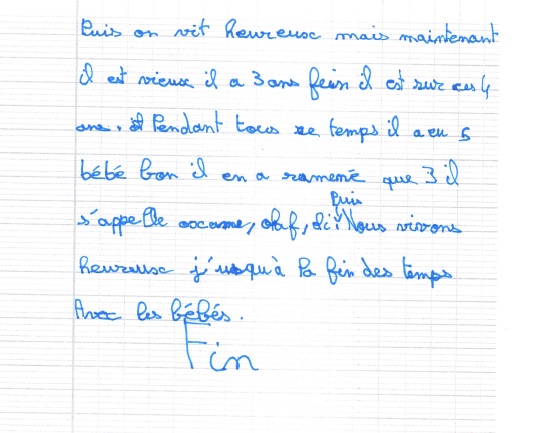 Puis on vit heureuse mais maintenant
il est vieux il a 3 ans fein il est sur ces 4
ans. Pendant tous ce temps il a eu 5
bébé bon il en a ramené que 3 il
s'appelle oscame, olaf, Puis Nous vivrons
heureuse j'usqu'à la fin des temps
Avec les bébés.
Fin